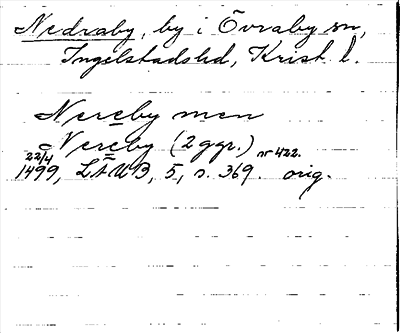 Nedraby, by i Övraby sn,
Ingelstads hd, Krist. l.
Nereby men
Nereby (2 ggr.) nr 422.
22/4
1499, LÄUB, 5, s. 369. orig.